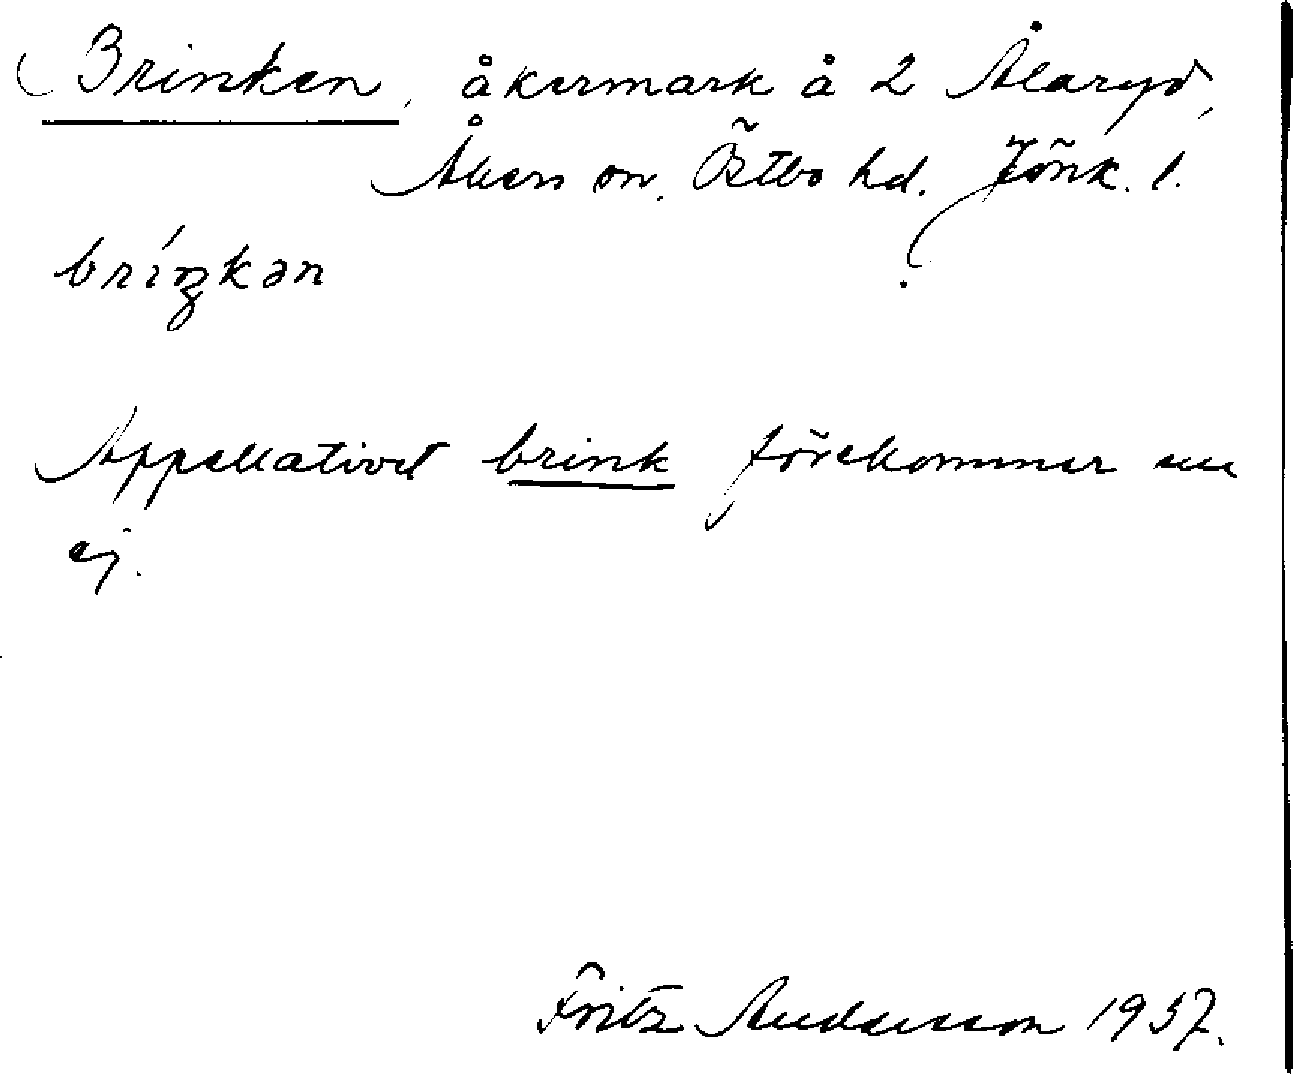 Brinken, åkermark å 2 Ålaryd,
Åkers sn. Östbo hd. Jönk. l.
bríŋkən
Appellativet brink förekommer nu
ej.
Fritz Andersson 1937.